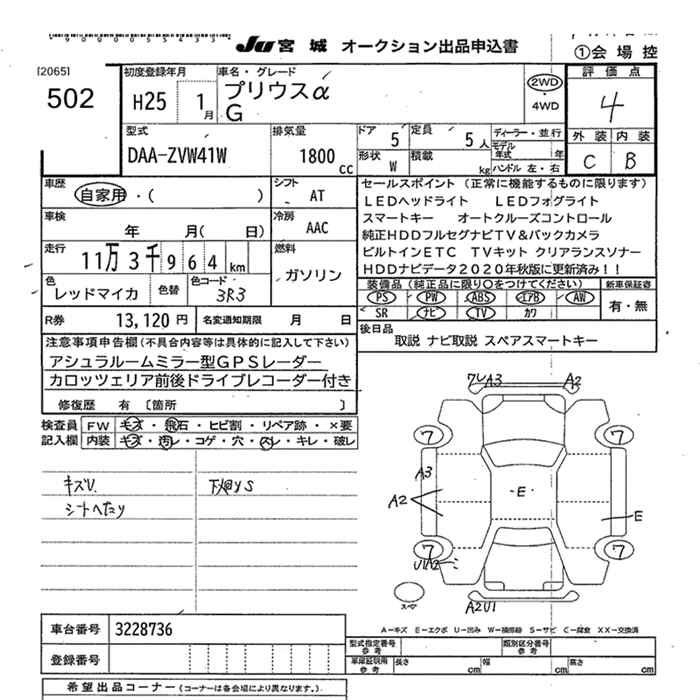 JU 宮城 オークション出品申込書
①会場控
[2065]
502
初度登録年月
H25 1月
車名・グレード
プリウスα
G
2WD
4WD
評価点
4
外装 内装
C B
型式
DAA-ZVW41W
排気量
1800cc
ドア 5
定員 5人
形状 W
積載 kg
ディーラー・並行
モデル年式 年
ハンドル 左・右
車歴
自家用・( )
シフト
AT
車検
年 月( 日)
冷房
AAC
走行
11万3千964km
燃料
ガソリン
色
レッドマイカ
色替
色コード
3R3
R券 13,120円
名変通知期限 月 日
セールスポイント (正常に機能するものに限ります)
LEDヘッドライト LEDフォグライト
スマートキー オートクルーズコントロール
純正HDDフルセグナビTV&バックカメラ
ビルトインETC TVキット クリアランスソナー
HDDナビデータ2020年秋版に更新済み!!
装備品(純正品に限り○をつけてください)
新車保証書
PS PW ABS エアB AW
SR ナビ TV カワ
有・無
後日品
取説 ナビ取説 スペアスマートキー
注意事項申告欄(不具合内容等は具体的に記入して下さい)
アシュラルームミラー型GPSレーダー
カロッツェリア前後ドライブレコーダー付き
修復歴 有 〔箇所 〕
検査員記入欄
FW キズ・飛石・ヒビ割・リペア跡・×要
内装 キズ・汚レ・コゲ・穴・スレ・キレ・破レ
キズU
シートへたり
下廻りS
ワレA3
A2
7
7
A3
A2
-E-
E
7
7
U1A2
A2U1
スペア
A-キズ E-エクボ U-凹み W-補修跡 S-サビ C-腐食 XX-交換済
車台番号 3228736
登録番号
型式指定番号
参考
類別区分番号
参考
車庫証明用
参考
長さ cm
幅 cm
高さ cm
希望出品コーナー(コーナーは各会場により異なります。)